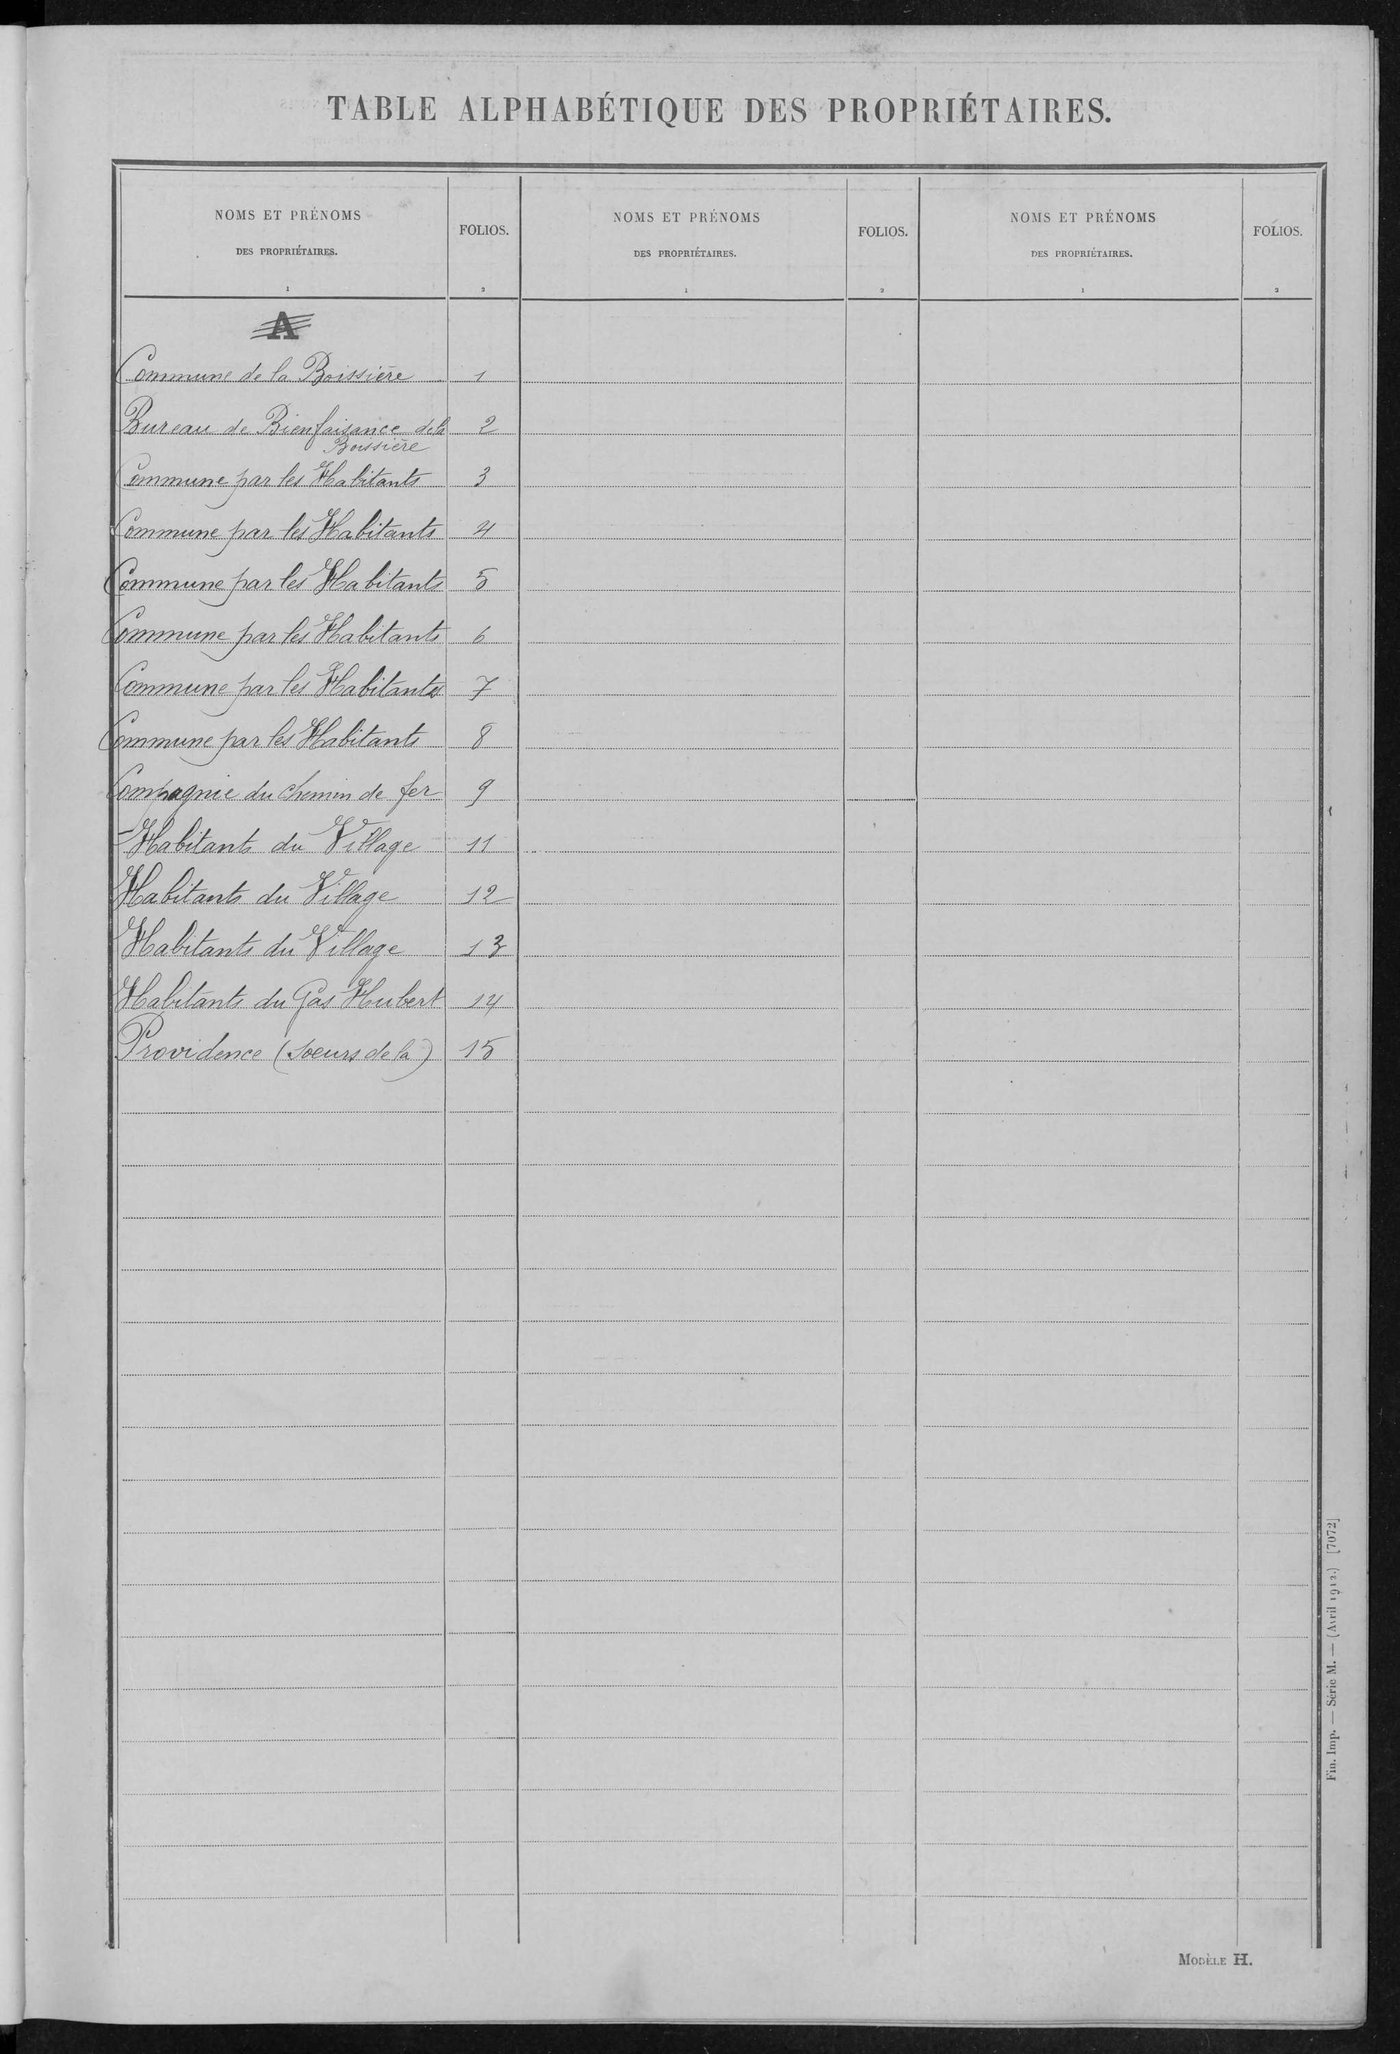 TABLE ALPHABÉTIQUE DES PROPRIÉTAIRES.
NOMS ET PRÉNOMS DES PROPRIÉTAIRES. FOLIOS. NOMS ET PRÉNOMS DES PROPRIÉTAIRES. FOLIOS. NOMS ET PRÉNOMS DES PROPRIÉTAIRES. FOLIOS.
1 2 1 2 1 2
A
Commune de la Boissière 1
Bureau de Bienfaisance de la 2
Boissière
Commune par les Habitants 3
Commune par les Habitants 4
Commune par les Habitants 5
Commune par les Habitants 6
Commune par les Habitants 7
Commune par les Habitants 8
Compagnie du chemin de fer 9
Habitants du Village 11
Habitants du Village 12
Habitants du Village 13
Habitants du Gas Hubert 14
Providence (Soeurs de la) 15
Fin. Imp. — Série M. — (Avril 1912.) [7072]
MODÈLE H.